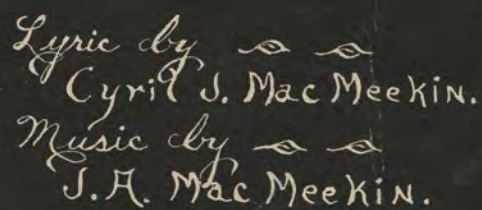 Lyric by
Cyril J. Mac Meekin.
Music by
J. A. Mac Meekin.